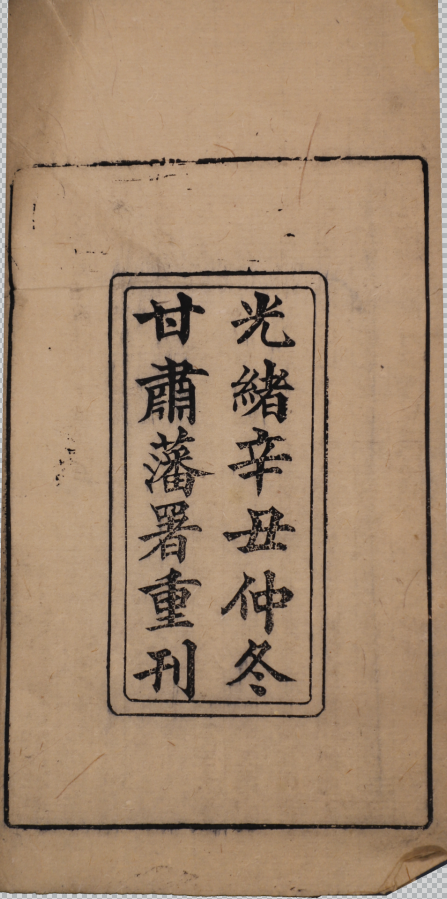 光緒辛丑仲冬
甘肅藩署重刊